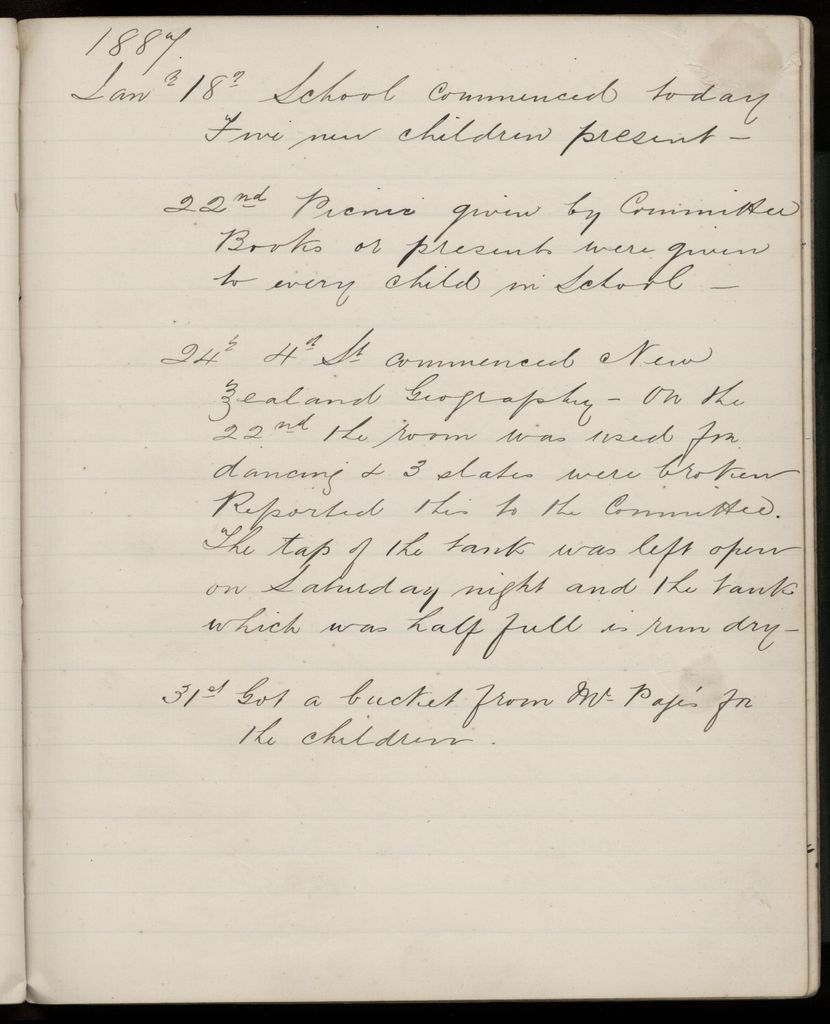 1887
Jany 18th School commenced today
Five new children present —
22nd Picnic given by Committee
Books or presents were given
to every child in School —
24th 4th St commenced New
Zealand Geography — On the
22nd the room was used for
dancing & 3 slates were broken
Reported this to the Committee.
The tap of the tank was left open
on Saturday night and the tank
which was half full is run dry —
31st Got a bucket from Mr Page's for
the children.